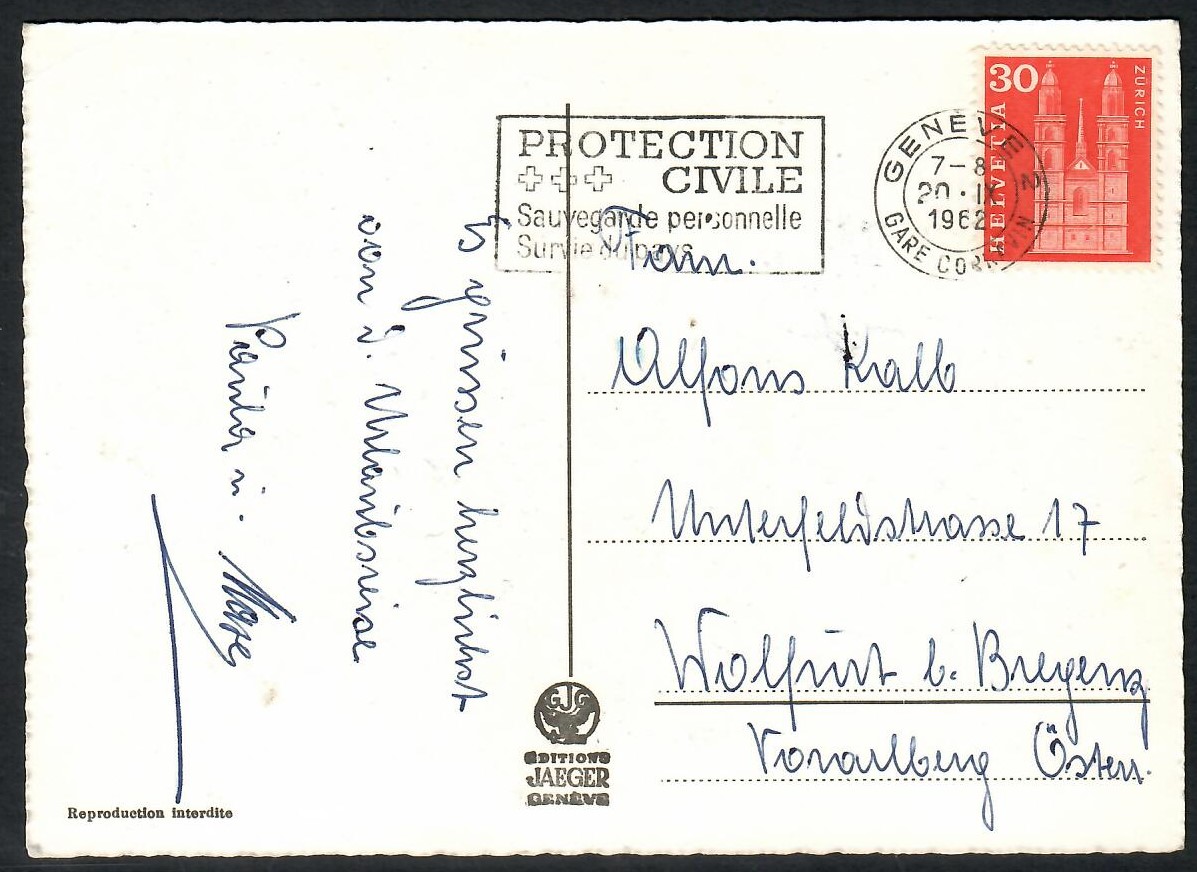 30
ZÜRICH
HELVETIA
GENÈVE 2
7-8
20·IX
1962
GARE CORNAVIN
PROTECTION
CIVILE
Sauvegarde personnelle
Survie du pays
Fam.
Alfons Kalb
Unterfeldstrasse 17
Wolfurt b. Bregenz
Vorarlberg Österr.
Es grüssen herzlichst
von d. Urlaubsreise
Paula u.
GJG
EDITIONS
JAEGER
GENÈVE
Reproduction interdite